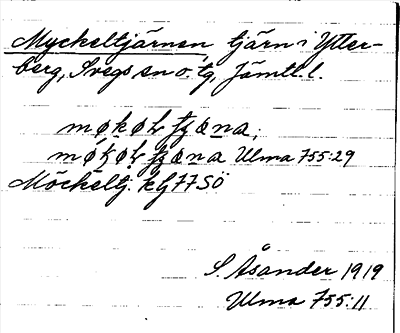 Myckeltjärnen, tjärn i Ytter-
berg, Svegs sn o. tg, Jämtl. l.
møkøL tjæna,
møkøL tjæna Ulma 755:29
Möckeltj. kbl 77 SÖ
S. Åsander 1919
Ulma 755:11